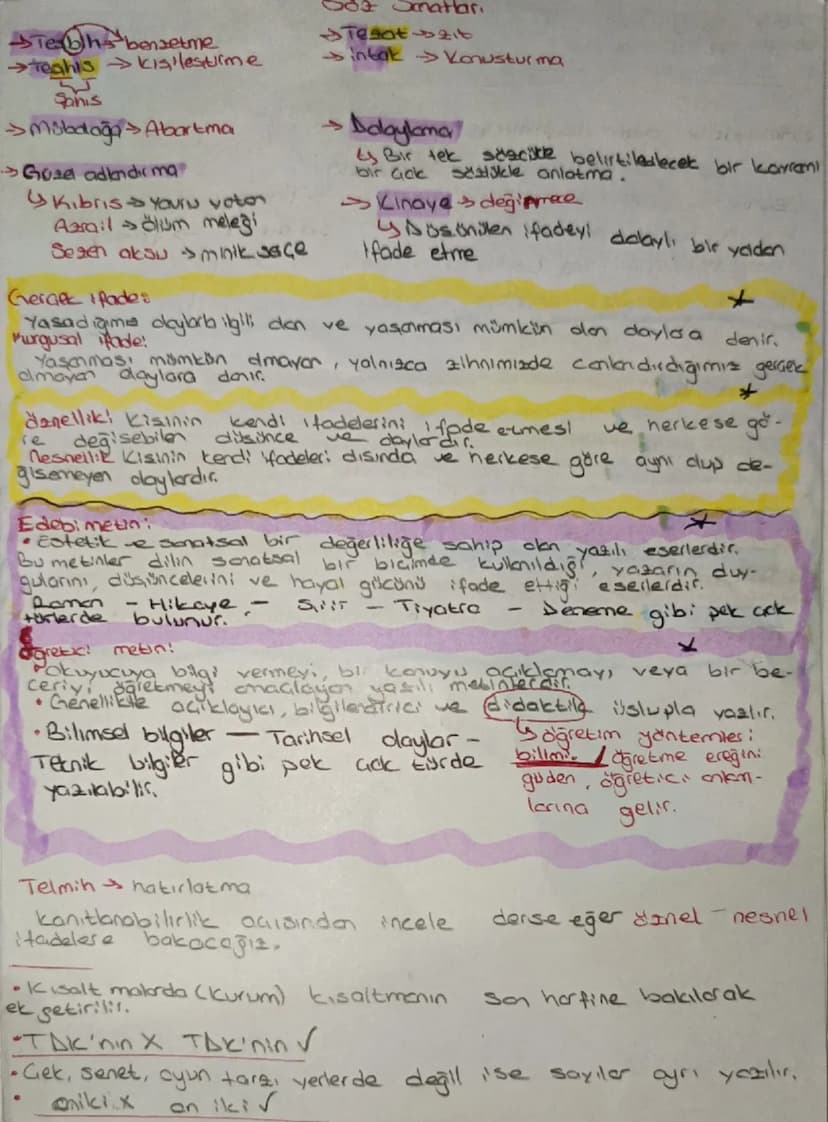 Söz Sanatları
→ Teşbih → benzetme
→ Teşhis → Kişileştirme
Şahıs
→ Tezat → zıt
→ intak → Konuşturma
→ Mübalağa → Abartma
→ Güzel adlandırma
↳ Kıbrıs → yavru vatan
Azrail → ölüm meleği
Sezen aksu → minik serçe
→ Dolaylama
↳ Bir tek sözcükle belirtilebilecek bir kavramı
bir çok sözcükle anlatma.
→ Kinaye → değinmece
↳ Düşünülen ifadeyi dolaylı bir yoldan
ifade etme
Gerçek ifade:
Yaşadığımız olaylarla ilgili olan ve yaşanması mümkün olan olaylara denir.
Kurgusal ifade:
Yaşanması mümkün olmayan, yalnızca zihnimizde canlandırdığımız gerçek
olmayan olaylara denir.
Öznellik: Kişinin kendi ifadelerini ifade etmesi ve herkese gö-
re değişebilen düşünce ve olaylardır.
Nesnellik Kişinin kendi ifadeleri dışında ve herkese göre aynı olup de-
ğişemeyen olaylardır.
Edebi metin:
• Estetik ve sanatsal bir değerliliğe sahip olan yazılı eserlerdir.
Bu metinler dilin sanatsal bir biçimde kullanıldığı, yazarın duy-
gularını, düşüncelerini ve hayal gücünü ifade ettiği eserlerdir.
Roman - Hikaye - Şiir - Tiyatro - Deneme gibi pek çok
türlerde bulunur.
Öğretici metin:
• Okuyucuya bilgi vermeyi, bir konuyu açıklamayı veya bir be-
ceriyi öğretmeyi amaçlayan yazılı metinlerdir.
• Genellikle açıklayıcı, bilgilendirici ve didaktik üslupla yazılır.
• Bilimsel bilgiler — Tarihsel olaylar -
Teknik bilgiler gibi pek çok türde
yazılabilir.
↳ öğretim yöntemleri
bilimi. / öğretme ereğini
güden, öğretici anlam-
larına gelir.
Telmih → hatırlatma
Kanıtlanabilirlik açısından incele derse eğer öznel - nesnel
ifadelere bakacağız.
• Kısalt malarda (kurum) kısaltmanın son harfine bakılarak
ek getirilir.
• TDK'nın X TDK'nin ✓
• Çek, senet, oyun tarzı yerlerde değil ise sayılar ayrı yazılır.
• oniki x on iki ✓